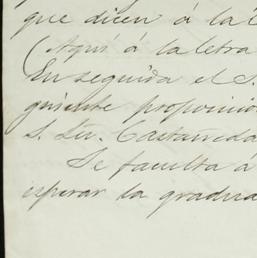 que dicen á la l
(Aquí á la letra
En seguida el S.
guiente proposicio
S. Lic. Castañeda
Se faculta á
esperar la gradua